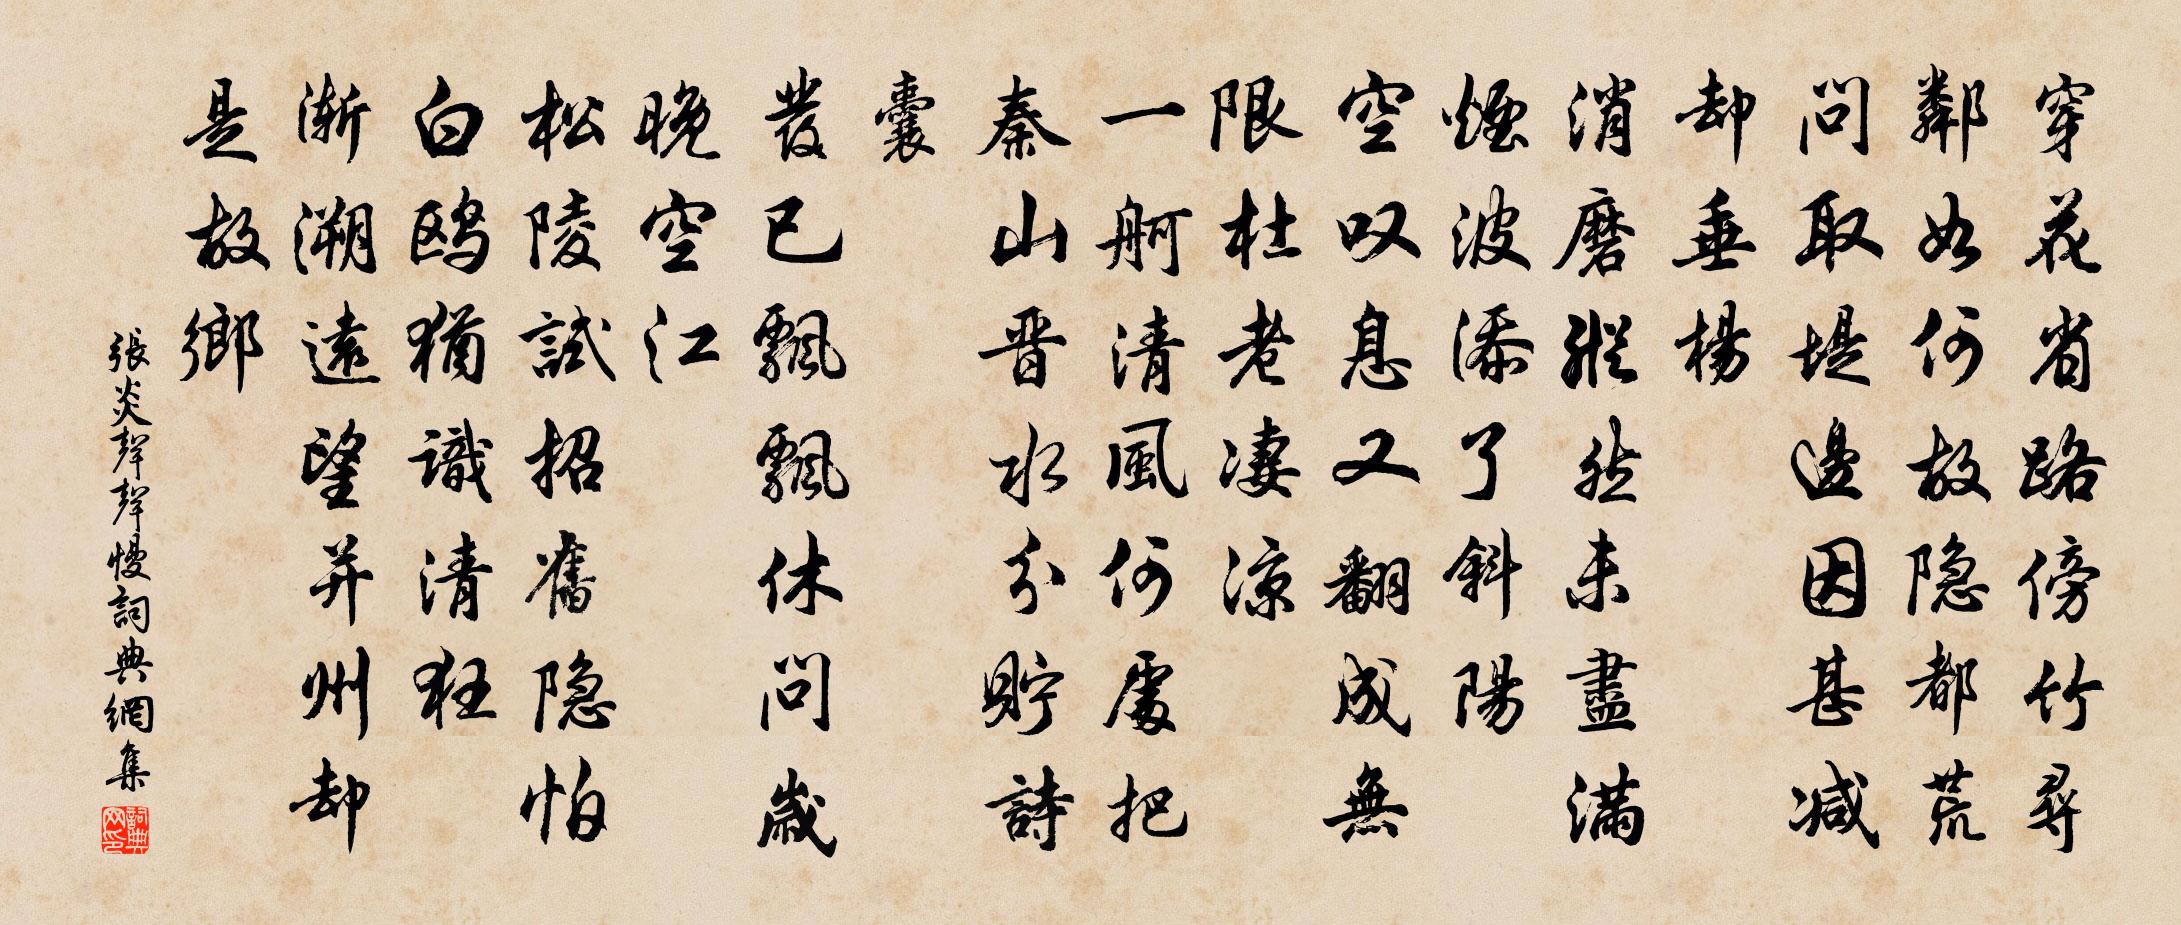 穿花省路傍竹尋
鄰如何故隐都荒
問取堤邊因甚减
却垂楊
消磨縱然未盡滿
煙波添了斜陽
空叹息又翻成無
限杜老凄涼
一舸清風何處把
秦山晋水分貯詩
囊
發已飄飄休問歲
晚空江
松陵試招舊隐怕
白鸥猶識清狂
渐溯遠望并州却
是故鄉
張炎聲聲慢詞典網集
詞典网印